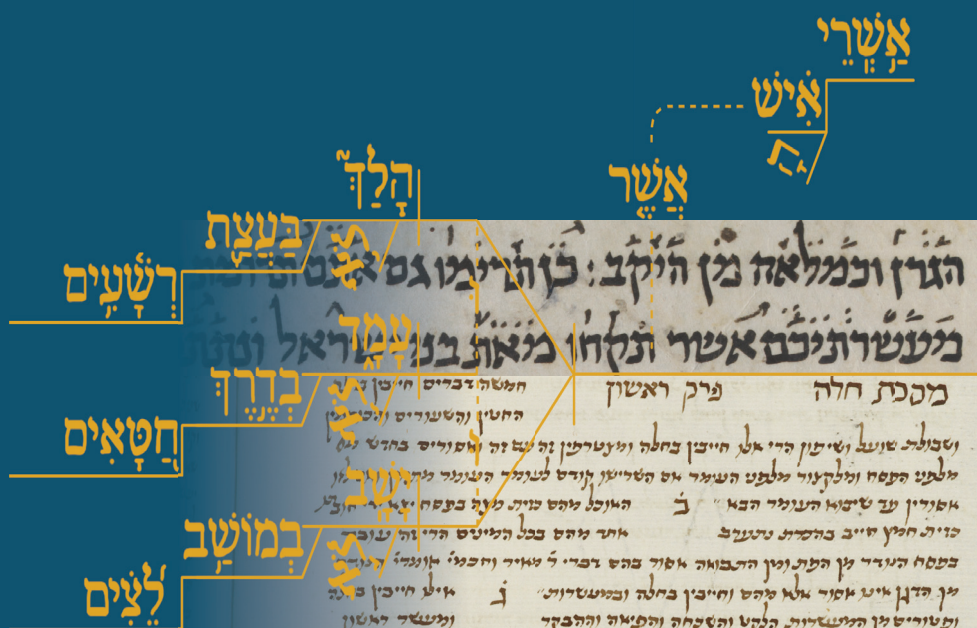 אַ֥שְֽׁרֵי
אִ֗ישׁ
הַ
אֲשֶׁ֤ר
הָלַךְ֮
בַּעֲצַ֪ת
רְשָׁ֫עִ֥ים
עָמָ֑ד
בְדֶ֣רֶךְ
חַ֭טָּאִים
יָשָֽׁב
בְמוֹשַׁ֥ב
לֵ֝צִ֗ים
הגרן וכמלאה מן היקב : כן תרימו גם אתם
מעשרתיכם אשר תקחו מאת בני ישראל ונתתם
מסכת חלה פרק ראשון חמשה דברים חייבין
החטין והשעורים והכוסמין
ושבולת שועל ושיפון הרי אלו חייבין בחלה ומצטרפין זה עם זה ואסורים בחדש מן
מלפני הפסח ומלקצור מלפני העומר אם השרישו קודם לעומר העומר
אסורין עד שיבוא העומר הבא ב האוכל מהם כזית מצה בפסח יצא
כזית חמץ חייב בהכרת נתערב אחד מהם בכל המינים הרי זה עובר
בפסח הנודר מן הפת ומן התבואה אסור בהם דברי ר׳ מאיר וחכמי׳ אומרי׳ הנודר
מן הדגן אינו אסור אלא מהם וחייבין בחלה ובמעשרות ג אילו חייבין
ופטורים מן המעשרות הלקט והשכחה והפיאה וההבקר ומעשר ראשון